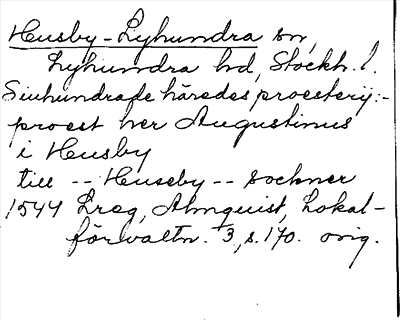 Husby-Lyhundra sn,
Lyhundra hd, Stockh. l.
Siuhundrade häredes proesterij:-
proest her Augustinus
i Husby
till -- Huseby -- sockner
1544 Lreg, Almquist, Lokal-
förvaltn. 3, s. 170. orig.